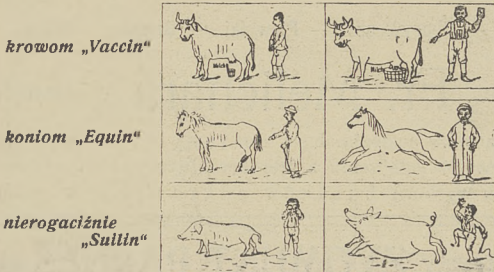 krowom „Vaccin“
Milch
Milch
koniom „Equin“
nierogaciźnie
„Suilin“